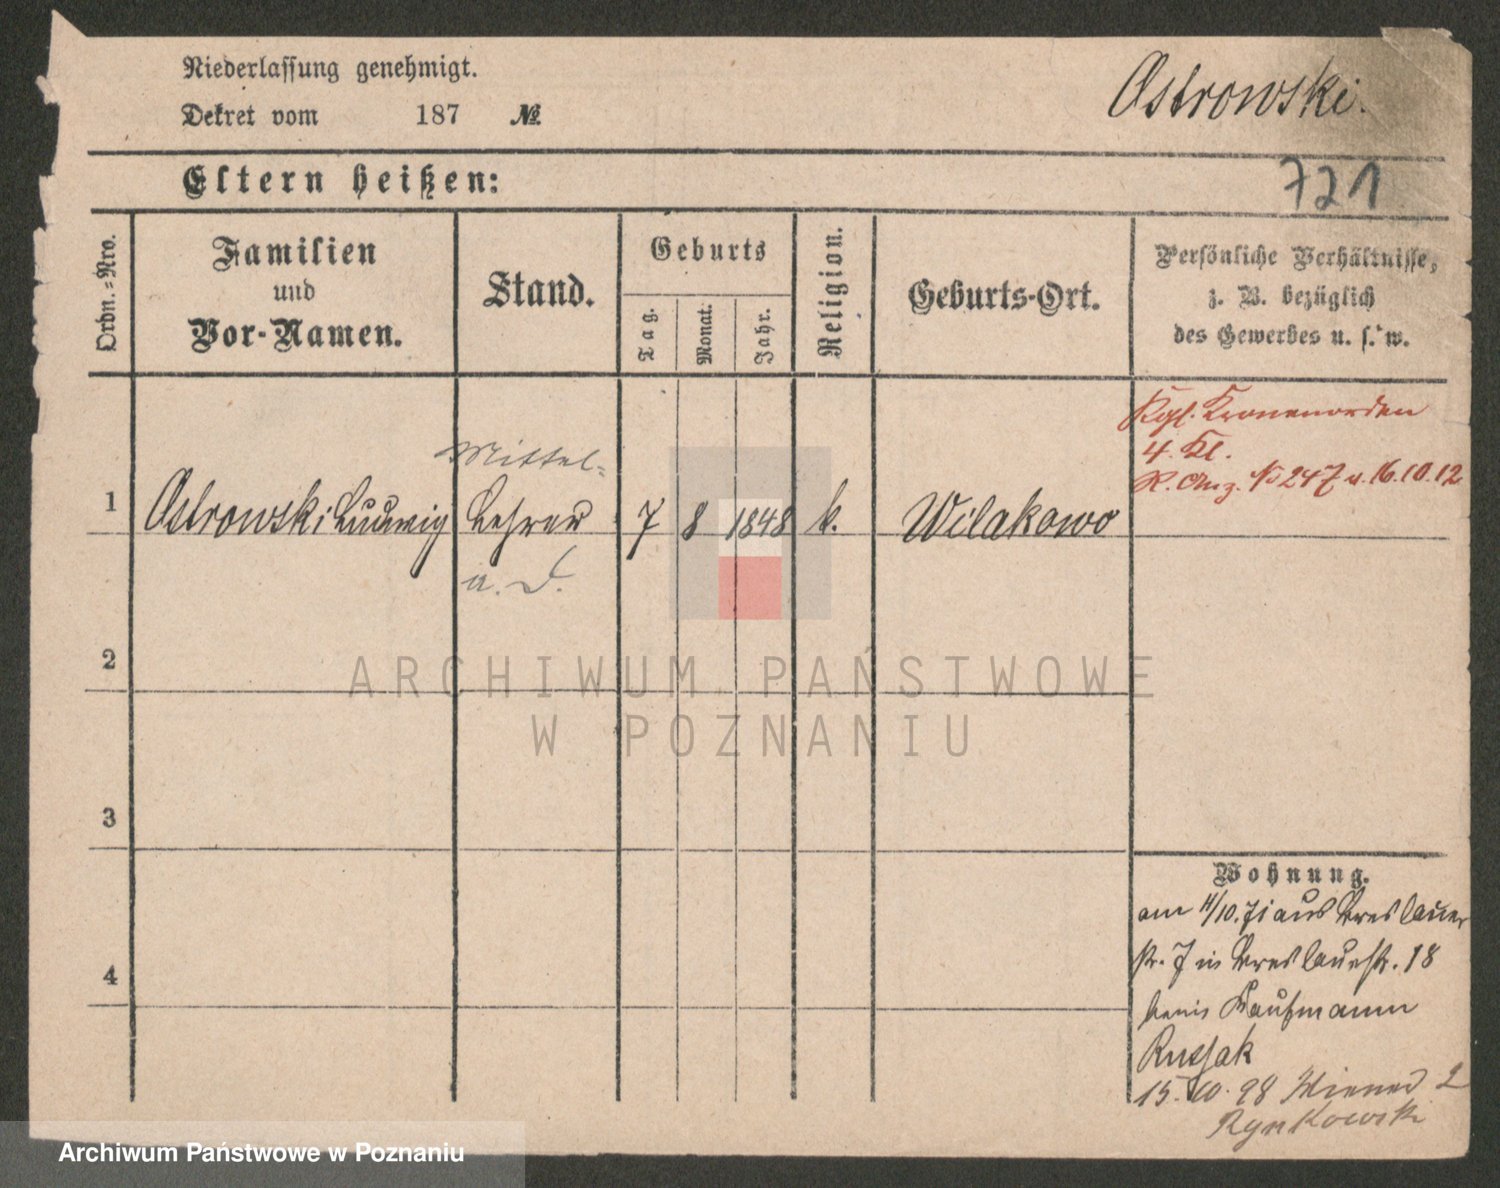 Niederlassung genehmigt.
Dekret vom 187 №
Ostrowski.
721
Eltern heißen:
Ordn.-Nro.
Familien
und
Vor-Namen.
Stand.
Geburts
Tag.
Monat.
Jahr.
Religion.
Geburts-Ort.
Persönliche Verhältnisse,
z. B. bezüglich
des Gewerbes u. s. w.
Kgl. Kronenorden
4. Kl.
R. Anz. № 247 v. 16.10.12
Mittel-
1 Ostrowski Ludwig Lehrer 7 8 1848 k. Wilakowo
a. D.
2
ARCHIWUM PAŃSTWOWE
W POZNANIU
3
Wohnung.
am 11/10.71 aus Breslauer
str. 7 in Breslauerstr. 18
beim Kaufmann
Russak
15.10.98 Wiener 2
Rynkowski
4
Archiwum Państwowe w Poznaniu